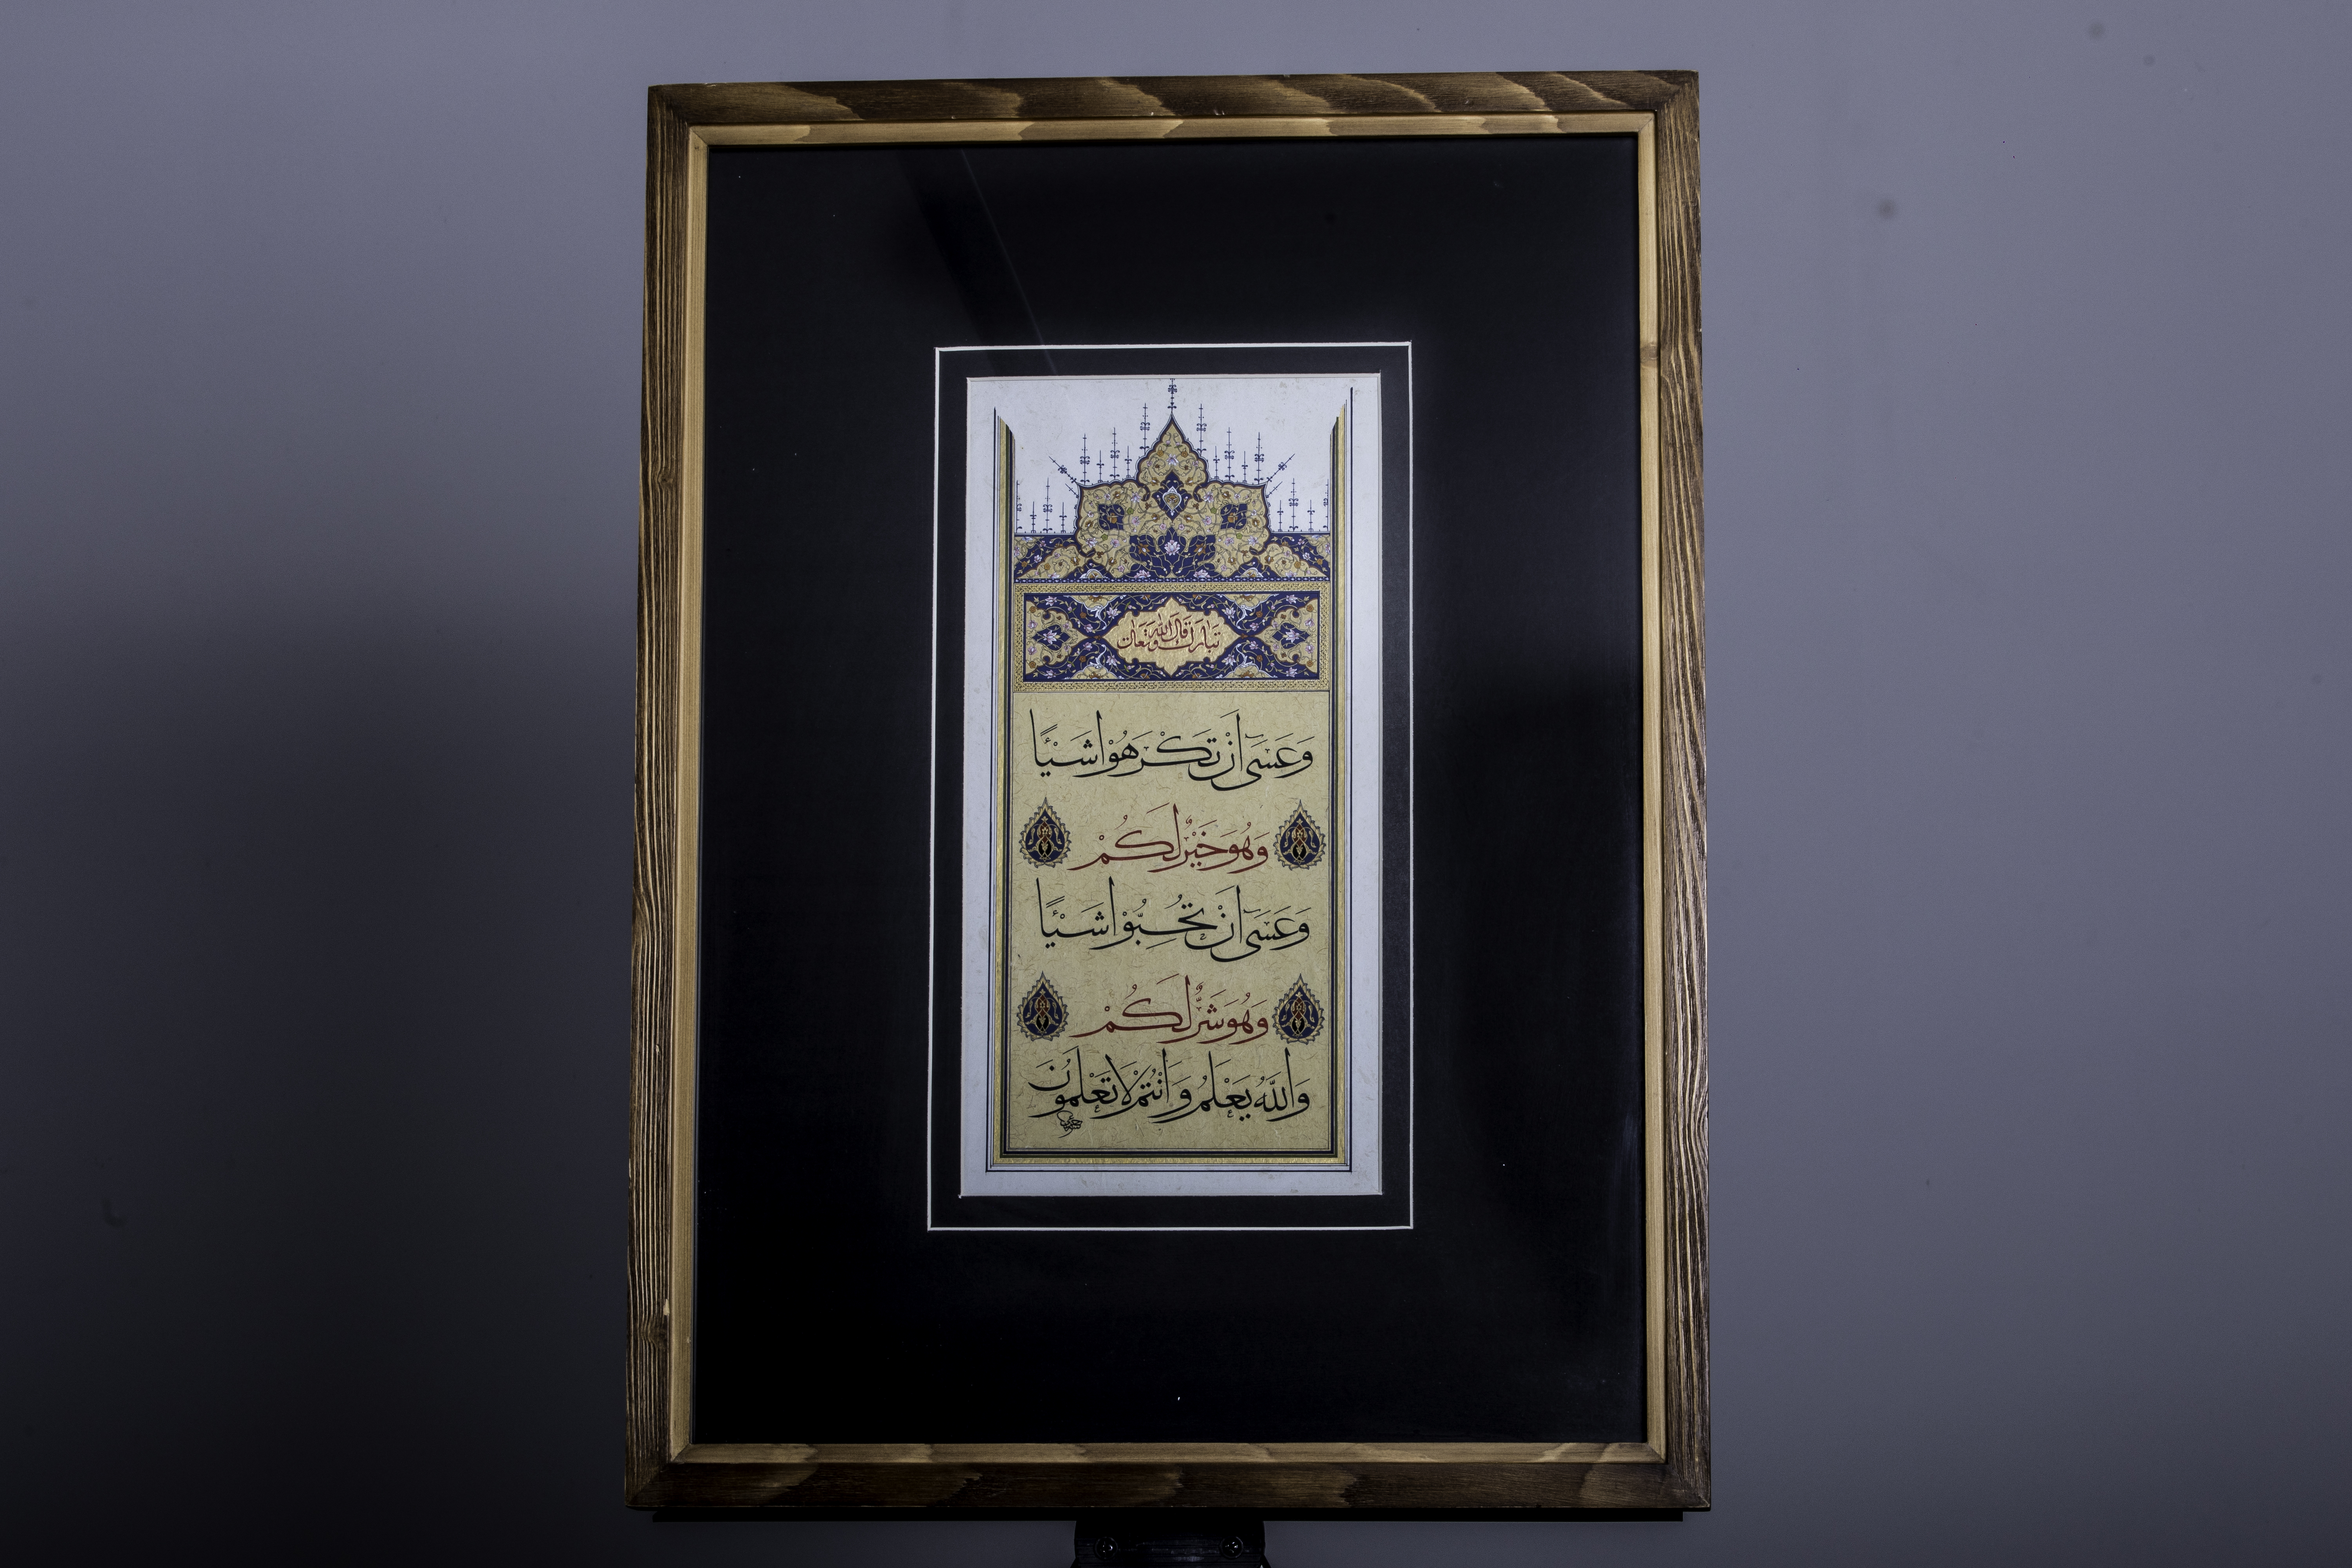 قال الله تبارك وتعالى
وَعَسَىٰ أَنْ تَكْرَهُوا شَيْئًا
وَهُوَ خَيْرٌ لَكُمْ
وَعَسَىٰ أَنْ تُحِبُّوا شَيْئًا
وَهُوَ شَرٌّ لَكُمْ
وَاللَّهُ يَعْلَمُ وَأَنْتُمْ لَا تَعْلَمُونَ